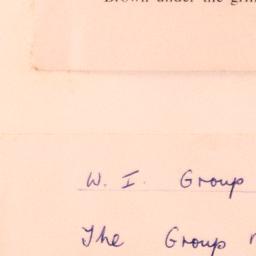 Brown under the
W. I. Group
The Group